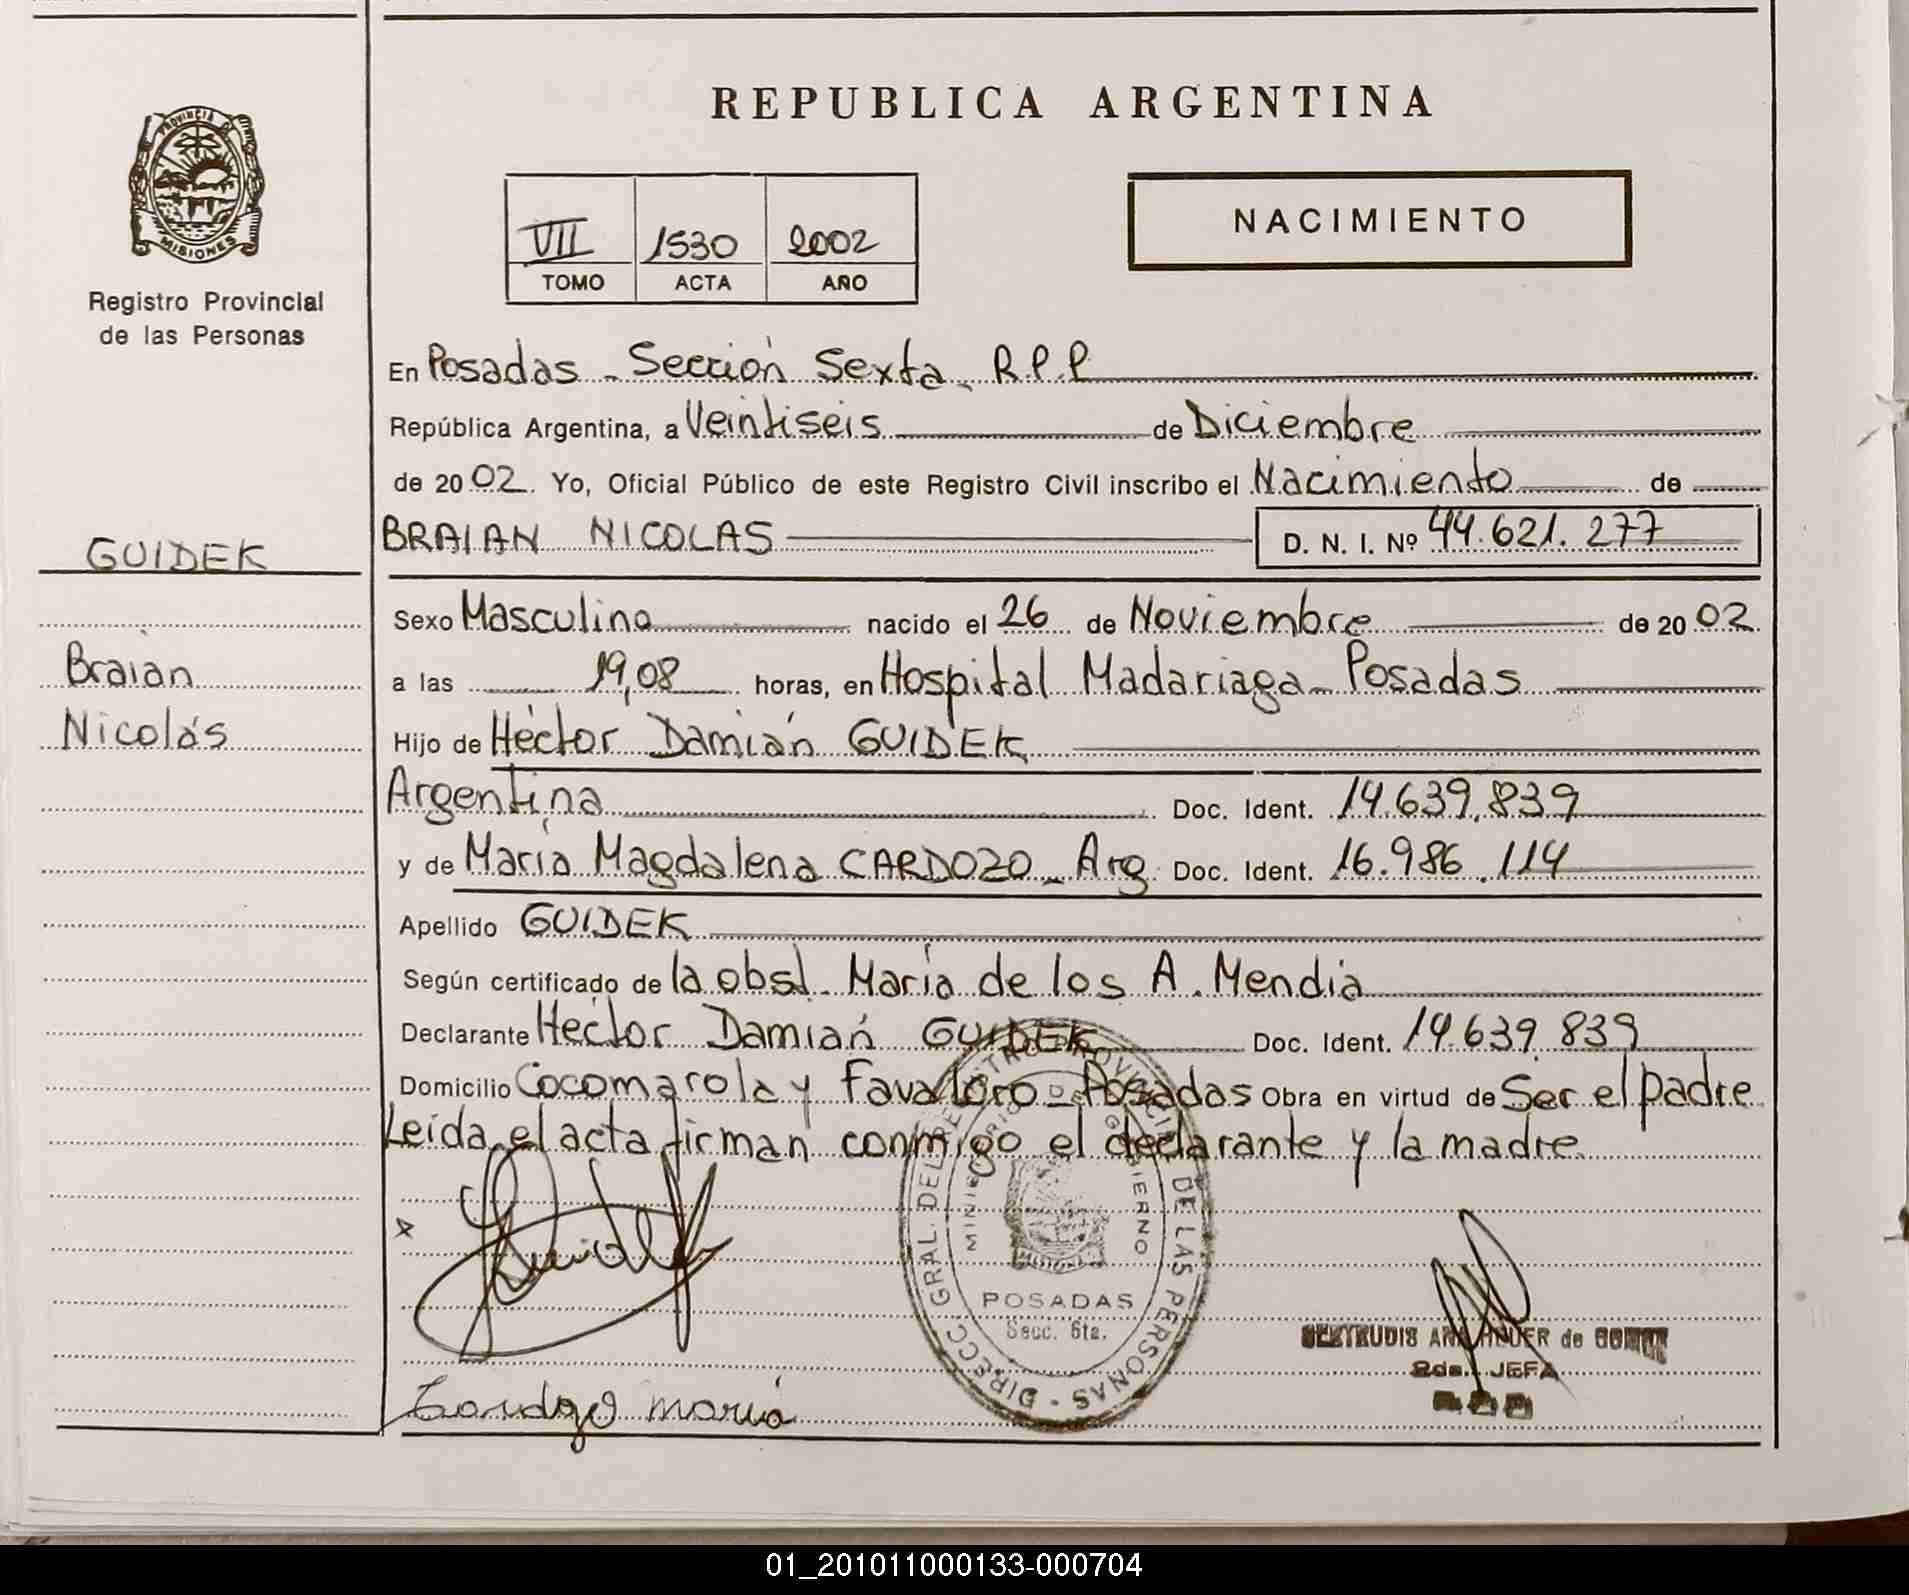 REPUBLICA ARGENTINA
PROVINCIA DE
MISIONES
Registro Provincial
de las Personas
VII 1530 2002
TOMO ACTA AÑO
NACIMIENTO
En Posadas - Sección Sexta - R.P.P
República Argentina, a Veintiseis de Diciembre
de 2002. Yo, Oficial Público de este Registro Civil inscribo el Nacimiento de
BRAIAN NICOLAS D. N. I. Nº 44.621.277
GUIDEK
Braian
Nicolás
Sexo Masculino nacido el 26 de Noviembre de 2002
a las 19,08 horas, en Hospital Madariaga - Posadas
Hijo de Héctor Damián GUIDEK
Argentina Doc. Ident. 14.639.839
y de María Magdalena CARDOZO - Arg. Doc. Ident. 16.986.114
Apellido GUIDEK
Según certificado de la obst. María de los A. Mendia
Declarante Héctor Damián GUIDEK Doc. Ident. 14.639.839
Domicilio Cocomarola y Favaloro - Posadas Obra en virtud de Ser el padre
Leída el acta firman conmigo el declarante y la madre.
DIRECC. GRAL. DEL REGISTRO PROVINCIAL DE LAS PERSONAS
MINISTERIO DE GOBIERNO
MISIONES
POSADAS
Secc. 6ta.
GERTRUDIS ANA HEUER de
2da. JEFA
Cardozo María
01_201011000133-000704